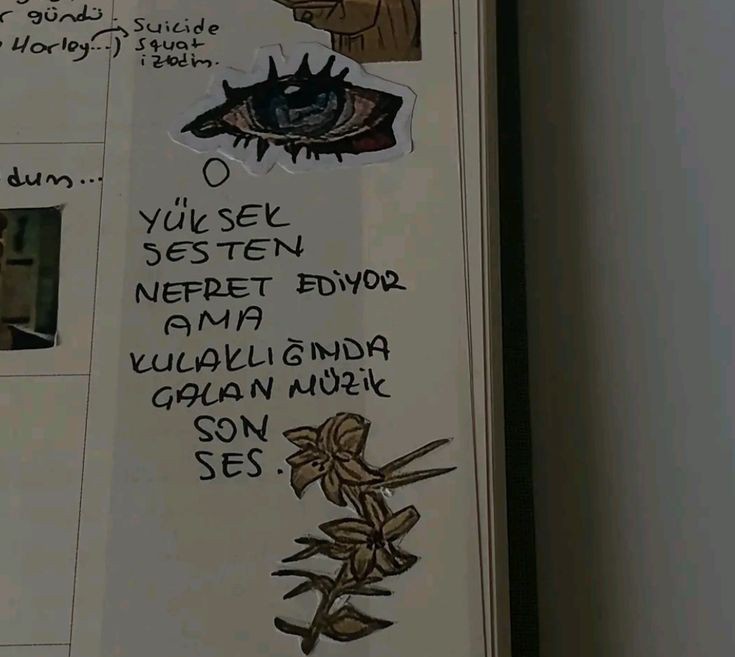 r gündü.
Harley...)
Suicide
Squat
izledim.
dum...
O
YÜKSEK
SESTEN
NEFRET EDİYOR
AMA
KULAKLIĞINDA
ÇALAN MÜZİK
SON
SES.